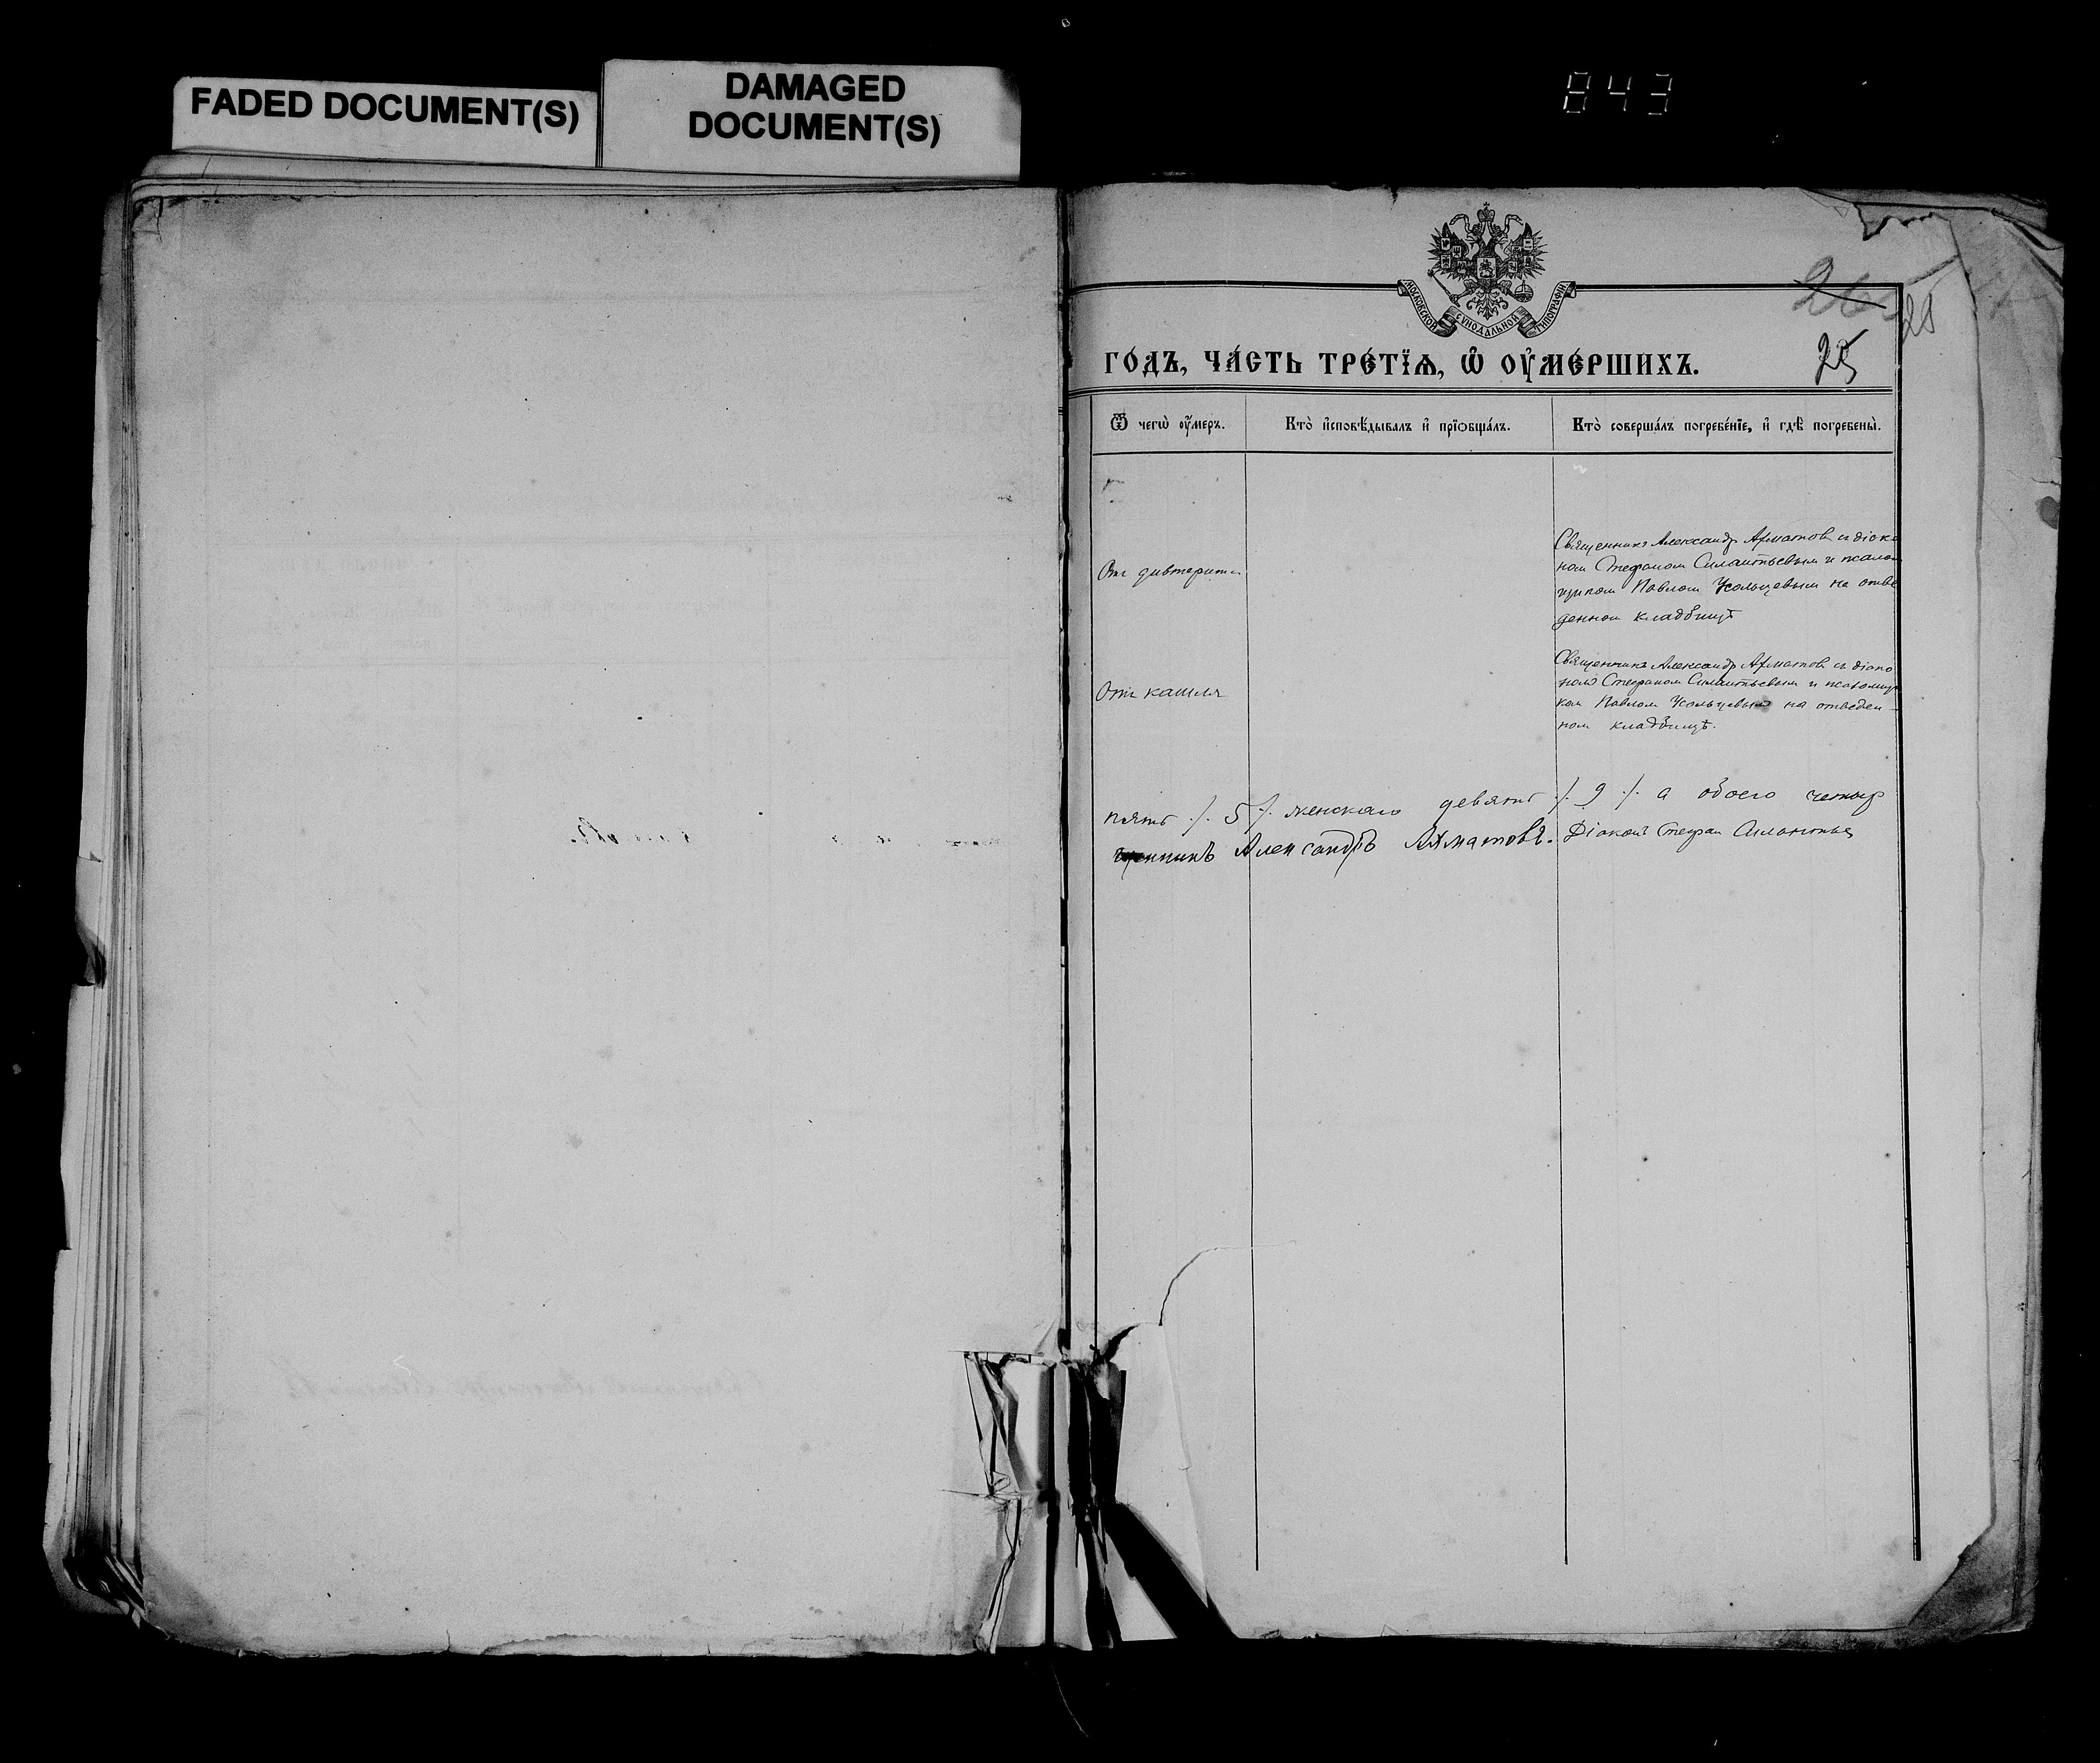 FADED DOCUMENT(S)
DAMAGED
DOCUMENT(S)
843
МОСКОВСКОЙ СѴНОДАЛЬНОЙ ТИПОГРАФІИ
26
25
25
ГО́ДЪ, ЧА́СТЬ ТРЕ́ТЇѦ, Ѡ҆ ОУ҆МЕ́РШИХЪ.
Ѿ чегѡ̀ оу҆́меръ.
Кто̀ и҆сповѣ́дывалъ и҆ прїѡбща́лъ.
Кто̀ соверша́лъ погребе́нїе, и҆ гдѣ̀ погребены̀.
Отъ дифтерита
Священникъ Александръ Ахматовъ съ діако
ном Стефаном Силантьевым и псалом
щиком Павлом Усольцевым на отве
денном кладбищѣ
Отъ кашля
Священникъ Александръ Ахматовъ съ діако
номъ Стефаном Силантьевым и псаломщи
ком Павлом Усольцевымъ на отведен-
ном кладбищѣ.
пять ./. 5 ./. женскаго девять ./. 9 ./. а обоего четыр
щенникъ Александръ Ахматовъ. Діаконъ Стефан Силантьев